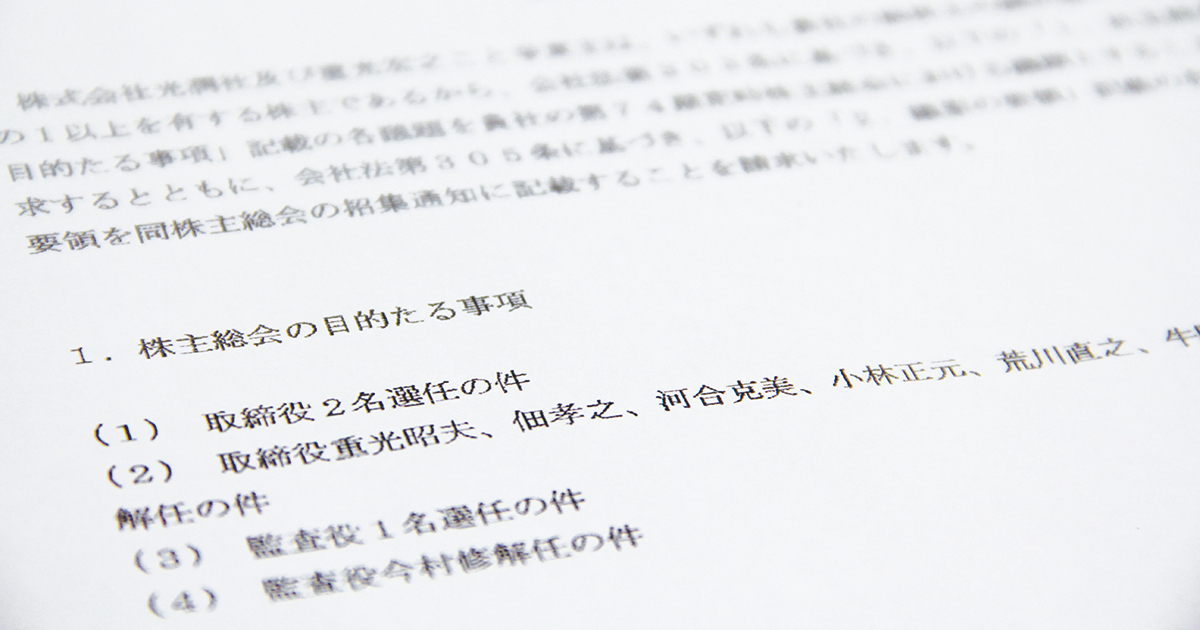 株式会社光潤社及び重光宏之こと辛東主は、いずれも貴社の
の1以上を有する株主であるから、会社法第303条に基づき、以下の「1.
目的たる事項」記載の各議題を貴社の第74期定時株主総会における議題とする
求するとともに、会社法第305条に基づき、以下の「2.議案の要領」記載の
要領を同株主総会の招集通知に記載することを請求いたします。
1.株主総会の目的たる事項
(1) 取締役2名選任の件
(2) 取締役重光昭夫、佃孝之、河合克美、小林正元、荒川直之、牛
解任の件
(3) 監査役1名選任の件
(4) 監査役今村修解任の件